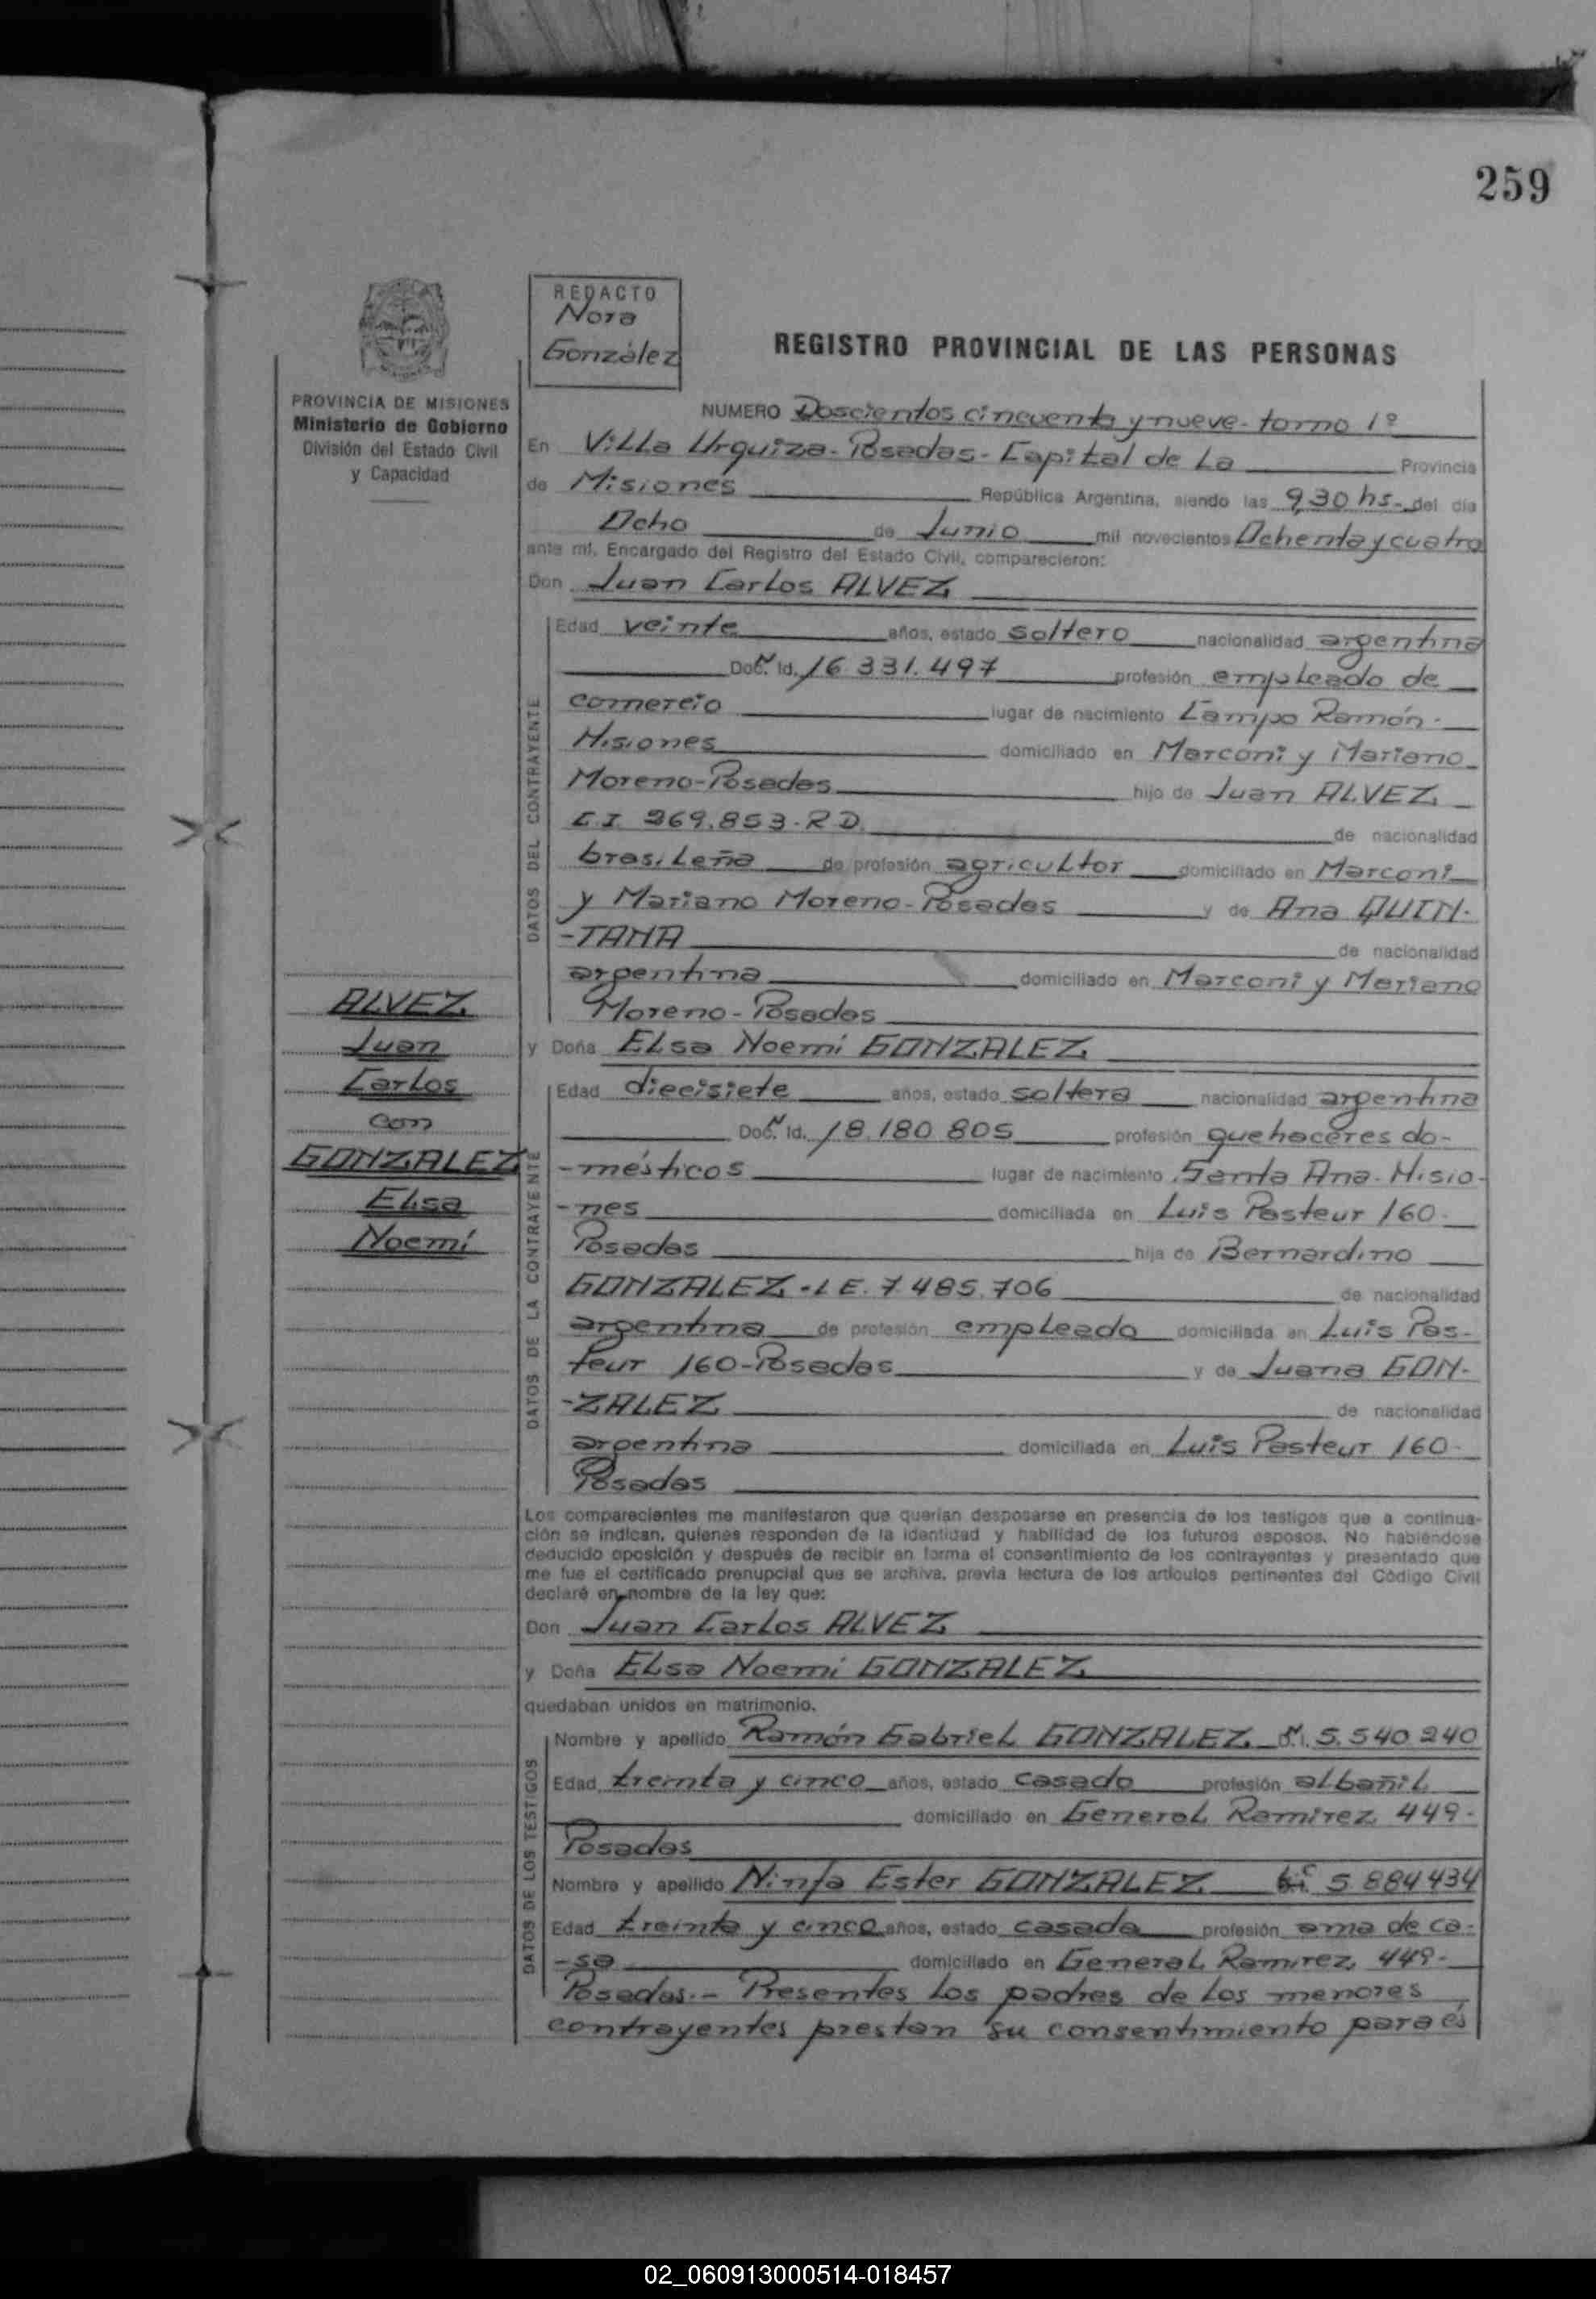 259
REDACTO
Nora
González
REGISTRO PROVINCIAL DE LAS PERSONAS
PROVINCIA DE MISIONES
Ministerio de Gobierno
División del Estado Civil
y Capacidad
NUMERO Doscientos cincuenta y nueve - tomo 1º
En Villa Urquiza - Posadas - Capital de La Provincia
de Misiones República Argentina, siendo las 9,30 hs. del día
Ocho de Junio mil novecientos Ochenta y cuatro
ante mí, Encargado del Registro del Estado Civil, comparecieron:
Don Juan Carlos ALVEZ
DATOS DEL CONTRAYENTE
Edad veinte años, estado soltero nacionalidad argentina
Doc. Id. 16.331.497 profesión empleado de
comercio lugar de nacimiento Campo Ramón -
Misiones domiciliado en Marconi y Mariano
Moreno - Posadas hijo de Juan ALVEZ
C.I. 269.853 - R D. de nacionalidad
brasileña de profesión agricultor domiciliado en Marconi
y Mariano Moreno - Posadas y de Ana QUIN-
-TANA de nacionalidad
argentina domiciliado en Marconi y Mariano
Moreno - Posadas
ALVEZ
Juan
Carlos
con
GONZALEZ
Elsa
Noemí
y Doña Elsa Noemí GONZALEZ
DATOS DE LA CONTRAYENTE
Edad diecisiete años, estado soltera nacionalidad argentina
Doc. Id. 18.180.805 profesión quehaceres do-
-mésticos lugar de nacimiento Santa Ana - Misio-
-nes domiciliada en Luis Pasteur 160 -
Posadas hija de Bernardino
GONZALEZ - L E. 7.485.706 de nacionalidad
argentina de profesión empleado domiciliada en Luis Pas-
teur 160 - Posadas y de Juana GON-
-ZALEZ de nacionalidad
argentina domiciliada en Luis Pasteur 160 -
Posadas
Los comparecientes me manifestaron que querían desposarse en presencia de los testigos que a continua-
ción se indican, quienes responden de la identidad y habilidad de los futuros esposos. No habiéndose
deducido oposición y después de recibir en forma el consentimiento de los contrayentes y presentado que
me fue el certificado prenupcial que se archiva, previa lectura de los artículos pertinentes del Código Civil
declaré en nombre de la ley que:
Don Juan Carlos ALVEZ
y Doña Elsa Noemí GONZALEZ
quedaban unidos en matrimonio.
DATOS DE LOS TESTIGOS
Nombre y apellido Ramón Gabriel GONZALEZ 5.540.240
Edad treinta y cinco años, estado casado profesión albañil
domiciliado en General Ramirez 449 -
Posadas
Nombre y apellido Ninfa Ester GONZALEZ 5.884434
Edad treinta y cinco años, estado casada profesión ama de ca-
-sa domiciliado en General Ramirez 449 -
Posadas. - Presentes los padres de los menores
contrayentes prestan su consentimiento para és
02_060913000514-018457